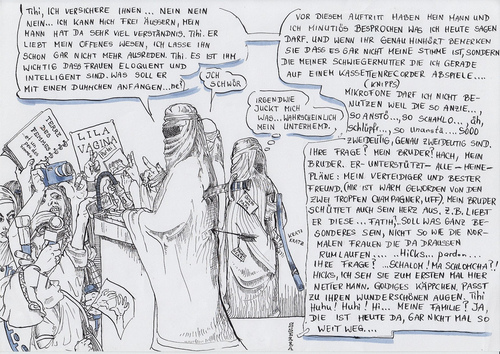 Tihi, ICH VERSICHERE IHNEN... NEIN NEIN
NEIN...ICH KANN MICH FREI ÄUSSERN, MEIN
MANN HAT DA SEHR VIEL VERSTÄNDNIS. Tihi. ER
LIEBT MEIN OFFENES WESEN, ICH LASSE IHN
SCHON GAR NICHT MEHR AUSREDEN. Tihi. ES IST IHM
WICHTIG DASS FRAUEN ELOQUENT UND
INTELLIGENT SIND. WAS SOLL ER
MIT EINEM DUMMCHEN ANFANGEN...ne?!
JCH
SCHWÖR
VOR DIESEM AUFTRITT HABEN MEIN MANN UND
ICH MINUTIÖS BESPROCHEN WAS ICH HEUTE SAGEN
DARF. UND WENN IHR GENAU HINHÖRT BEMERKEN
SIE DASS ES GAR NICHT MEINE STIMME IST, SONDERN
DIE MEINER SCHWIEGERMUTTER DIE ICH GERADE
AUF EINEM KASSETTENRECORDER ABSPIELE....
(KNIPPS)
MIKROFONE DARF ICH NICHT BE-
NUTZEN WEIL DIE SO ANZIE...,
SO ANSTÖ..., SO SCHAMLO... äh,
schlüpf..., so unanstä....SOOO
ZWEIDEUTIG, GENAU ZWEIDEUTIG SIND.
IHRE FRAGE? MEIN BRUDER! HACH, MEIN
BRUDER. ER-UNTERSTÜTZT-ALLE-MEINE-
PLÄNE: MEIN VERTEIDIGER UND BESTER
FREUND, (MIR IST WARM GEWORDEN VON DEN
ZWEI TROPFEN CHAMPAGNER, UFF). MEIN BRUDER
SCHÜTTET AUCH SEIN HERZ AUS, Z.B. LIEBT
ER DIESE... FATM!. SOLL WAS GANZ BE-
SONDERES SEIN, NICHT SO WIE DIE NOR-
MALEN FRAUEN DIE DA DRAUSSEN
RUMLAUFEN.... ...Hicks... pardon...
IHRE FRAGE? ...SCHALOM! MA SCHLOMCHA?!
HICKS, ICH SEH SIE ZUM ERSTEN MAL HIER
NETTER MANN. GOLDIGES KÄPPCHEN. PASST
ZU IHREN WUNDERSCHÖNEN AUGEN. Tihi
Huhu! Huhi! Hi... MEINE FAMILIE? JA,
DIE IST HEUTE DA, GAR NICHT MAL SO
WEIT WEG....
IRGENDWIE
JUCKT MICH
WAS...WAHRSCHEINLICH
MEIN UNTERHEMD.
LILA
VAGINA
KRATZ
KRATZ